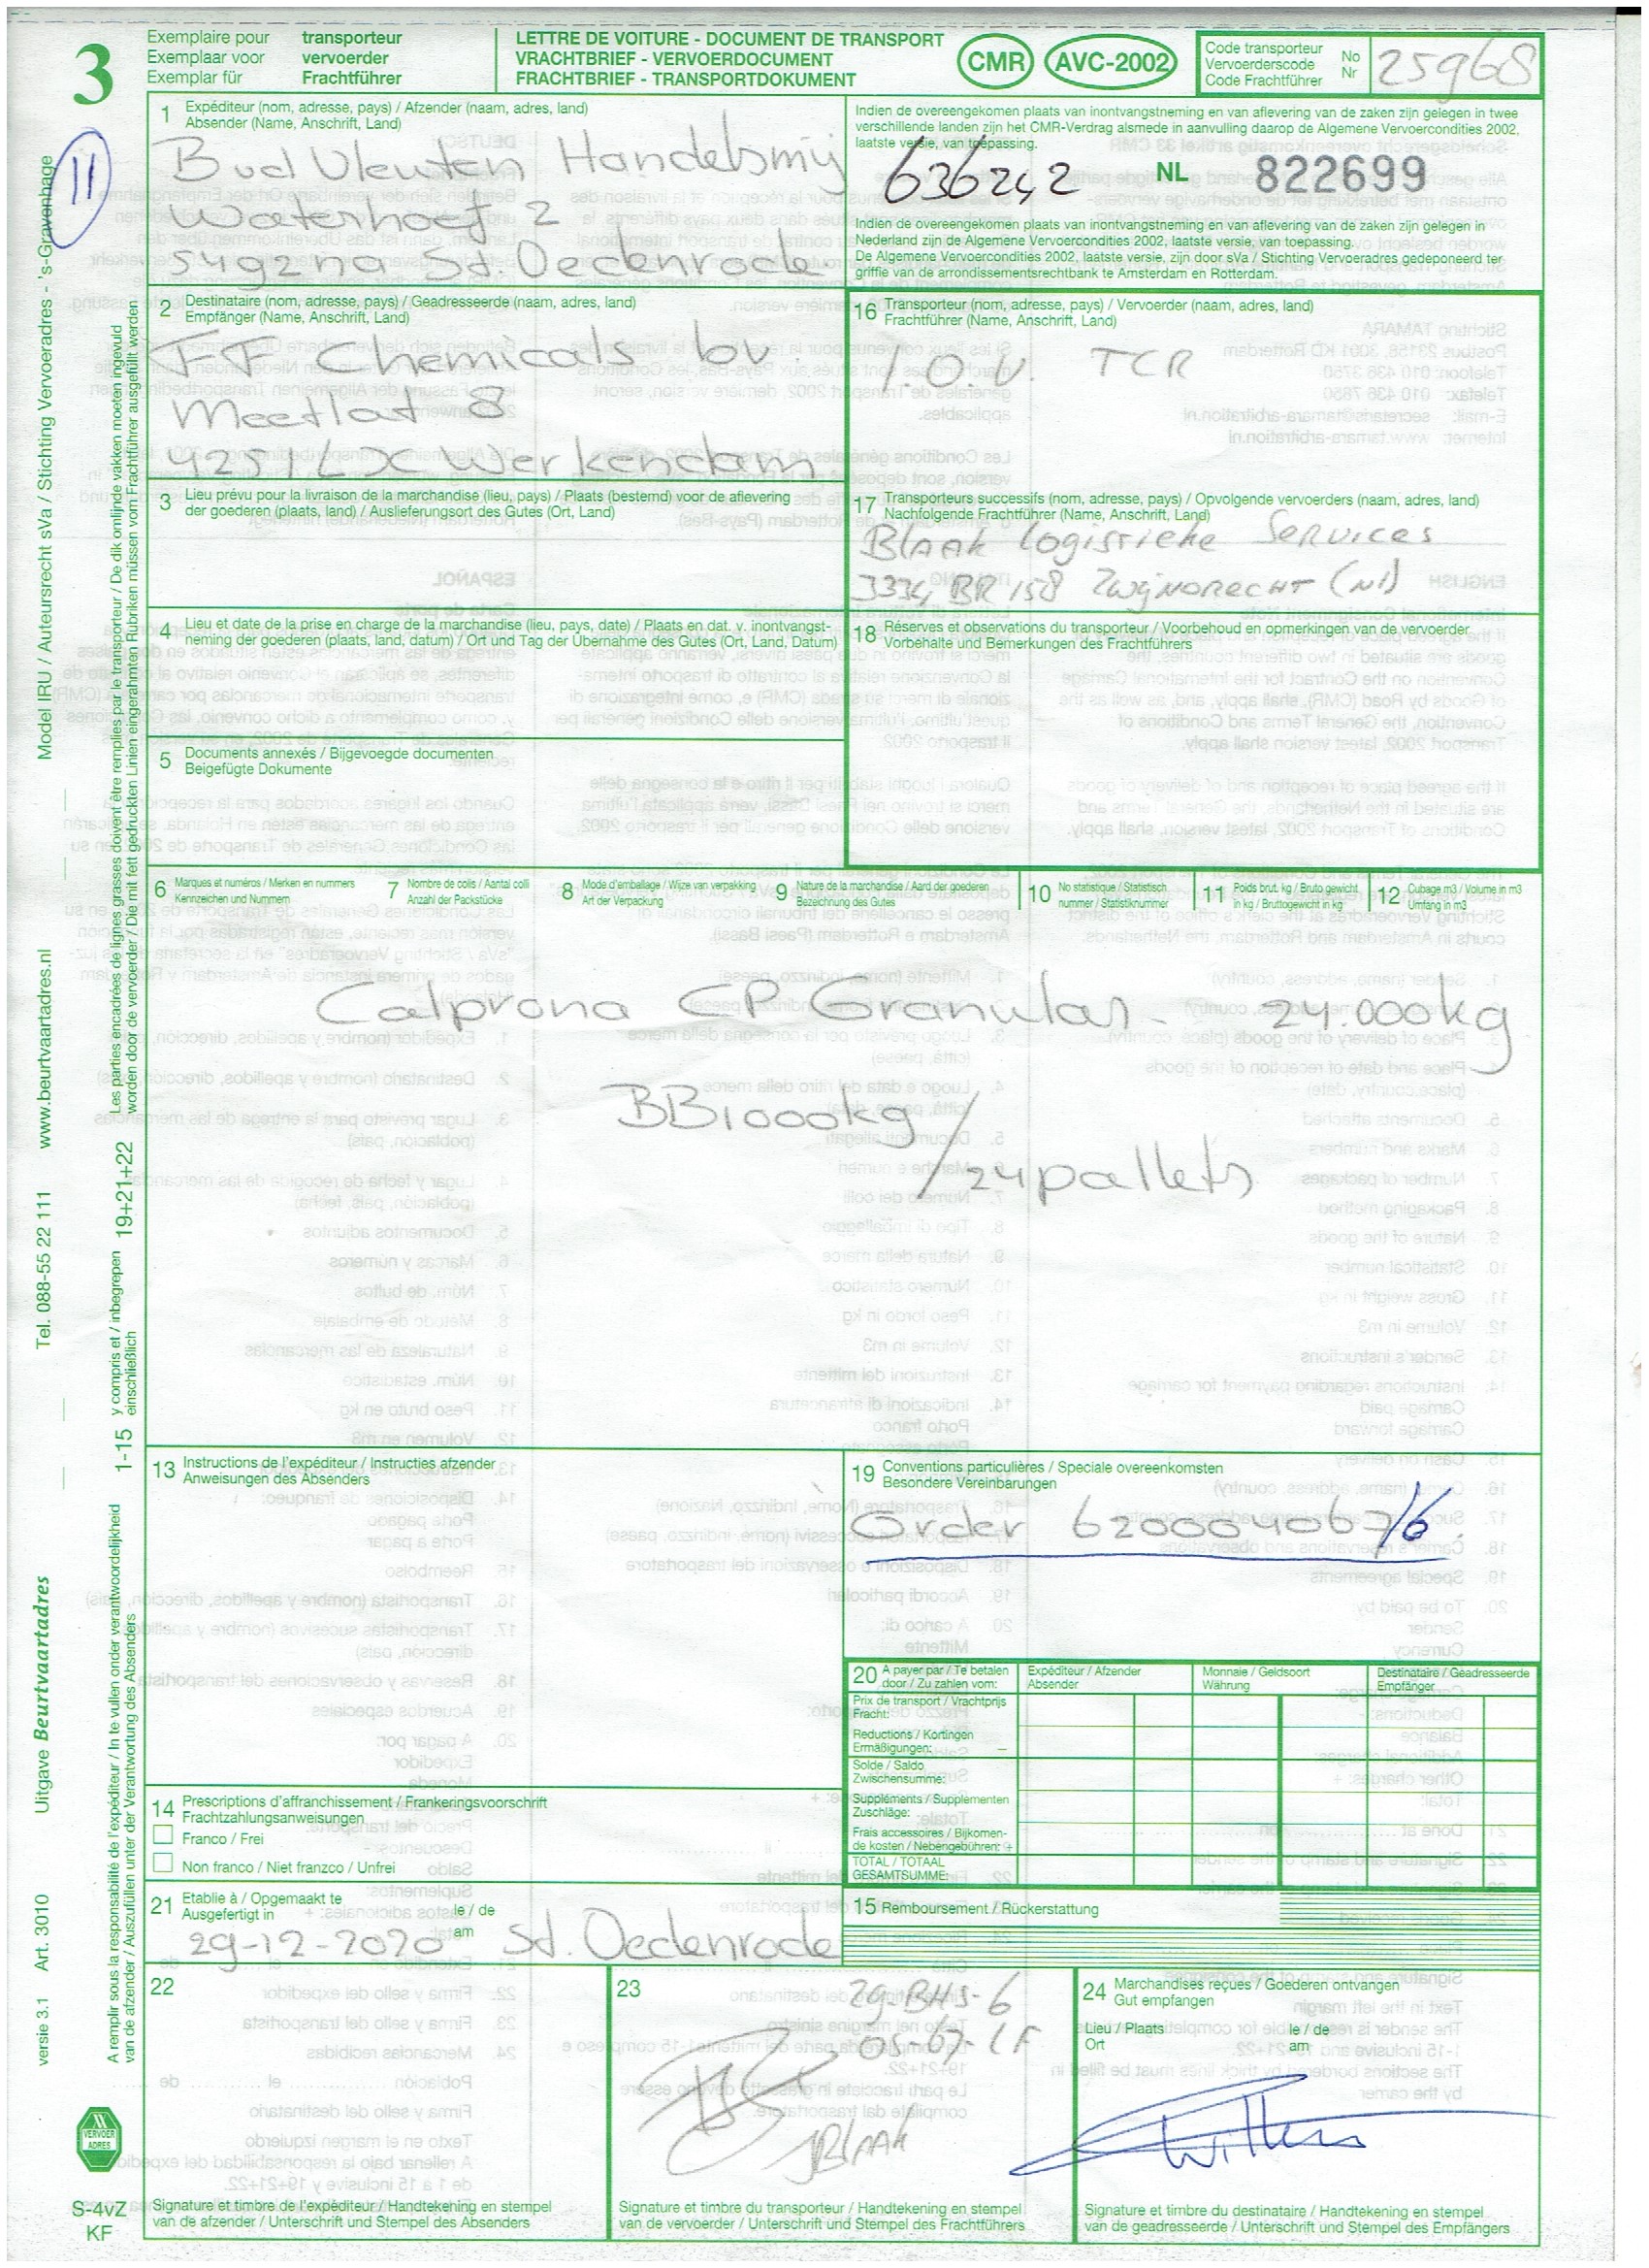 3
Exemplaire pour transporteur
Exemplaar voor vervoerder
Exemplar für Frachtführer
LETTRE DE VOITURE - DOCUMENT DE TRANSPORT
VRACHTBRIEF - VERVOERDOCUMENT
FRACHTBRIEF - TRANSPORTDOKUMENT
CMR AVC-2002
Code transporteur No
Vervoerderscode Nr
Code Frachtführer
25968
11
1 Expéditeur (nom, adresse, pays) / Afzender (naam, adres, land)
Absender (Name, Anschrift, Land)
Bud Vleuten Handelsmij
Waterhoef 2
5492na St. Oedenrode
Indien de overeengekomen plaats van inontvangstneming en van aflevering van de zaken zijn gelegen in twee
verschillende landen zijn het CMR-Verdrag alsmede in aanvulling daarop de Algemene Vervoercondities 2002,
laatste versie, van toepassing.
636242 NL 822699
Indien de overeengekomen plaats van inontvangstneming en van aflevering van de zaken zijn gelegen in
Nederland zijn de Algemene Vervoercondities 2002, laatste versie, van toepassing.
De Algemene Vervoercondities 2002, laatste versie, zijn door sVa / Stichting Vervoeradres gedeponeerd ter
griffie van de arrondissementsrechtbank te Amsterdam en Rotterdam.
2 Destinataire (nom, adresse, pays) / Geadresseerde (naam, adres, land)
Empfänger (Name, Anschrift, Land)
FF Chemicals bv.
Meetlat 8
4251LX Werkendam
16 Transporteur (nom, adresse, pays) / Vervoerder (naam, adres, land)
Frachtführer (Name, Anschrift, Land)
I.O.V. TCR
3 Lieu prévu pour la livraison de la marchandise (lieu, pays) / Plaats (bestemd) voor de aflevering
der goederen (plaats, land) / Auslieferungsort des Gutes (Ort, Land)
17 Transporteurs successifs (nom, adresse, pays) / Opvolgende vervoerders (naam, adres, land)
Nachfolgende Frachtführer (Name, Anschrift, Land)
Blaak logistieke Services
3334 BR 158 Zwijndrecht (Nl)
4 Lieu et date de la prise en charge de la marchandise (lieu, pays, date) / Plaats en dat. v. inontvangst-
neming der goederen (plaats, land, datum) / Ort und Tag der Übernahme des Gutes (Ort, Land, Datum)
18 Réserves et observations du transporteur / Voorbehoud en opmerkingen van de vervoerder
Vorbehalte und Bemerkungen des Frachtführers
5 Documents annexés / Bijgevoegde documenten
Beigefügte Dokumente
6 Marques et numéros / Merken en nummers
Kennzeichen und Nummern
7 Nombre de colis / Aantal colli
Anzahl der Packstücke
8 Mode d'emballage / Wijze van verpakking
Art der Verpackung
9 Nature de la marchandise / Aard der goederen
Bezeichnung des Gutes
10 No statistique / Statistisch
nummer / Statistiknummer
11 Poids brut, kg / Bruto gewicht
in kg / Bruttogewicht in kg
12 Cubage m3 / Volume in m3
Umfang in m3
Calprona CP Granular. 24.000kg
BB1000kg
/24pallets
13 Instructions de l'expéditeur / Instructies afzender
Anweisungen des Absenders
19 Conventions particulières / Speciale overeenkomsten
Besondere Vereinbarungen
Order 620004067/6.
20 A payer par / Te betalen
door / Zu zahlen vom:
Expéditeur / Afzender
Absender
Monnaie / Geldsoort
Währung
Destinataire / Geadresseerde
Empfänger
Prix de transport / Vrachtprijs
Fracht:
Reductions / Kortingen
Ermäßigungen: –
Solde / Saldo
Zwischensumme:
Suppléments / Supplémenten
Zuschläge:
Frais accessoires / Bijkomen-
de kosten / Nebengebühren: +
TOTAL / TOTAAL
GESAMTSUMME:
14 Prescriptions d'affranchissement / Frankeringsvoorschrift
Frachtzahlungsanweisungen
Franco / Frei
Non franco / Niet franzco / Unfrei
21 Etablie à / Opgemaakt te le / de
Ausgefertigt in am
29-12-2020 St. Oedenrode
15 Remboursement / Rückerstattung
22
Signature et timbre de l'expéditeur / Handtekening en stempel
van de afzender / Unterschrift und Stempel des Absenders
23
29-BHS-6
05-67-LF
JBlaak
Signature et timbre du transporteur / Handtekening en stempel
van de vervoerder / Unterschrift und Stempel des Frachtführers
24 Marchandises reçues / Goederen ontvangen
Gut empfangen
Lieu / Plaats le / de
Ort am
Signature et timbre du destinataire / Handtekening en stempel
van de geadresseerde / Unterschrift und Stempel des Empfängers
Model IRU / Auteursrecht sVa / Stichting Vervoeradres - 's-Gravenhage
www.beurtvaartadres.nl
Tel. 088-55 22 111
Uitgave Beurtvaartadres
Art. 3010
versie 3.1
Les parties encadrées de lignes grasses doivent être remplies par le transporteur / De dik omlijnde vakken moeten ingevuld
worden door de vervoerder / Die mit fett gedruckten Linien eingerahmten Rubriken müssen vom Frachtführer ausgefüllt werden
19+21+22
y compris et / inbegrepen
einschließlich
1-15
A remplir sous la responsabilité de l'expéditeur / In te vullen onder verantwoordelijkheid
van de afzender / Auszufüllen unter der Verantwortung des Absenders
VERVOER
ADRES
S-4vZ
KF